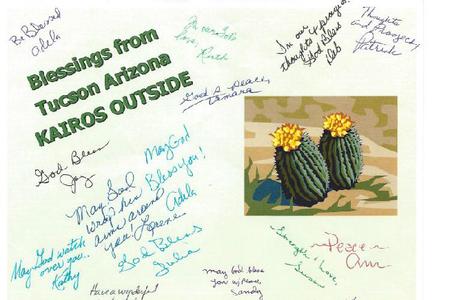 Be Blessed
Adela
In our
thoughts & prayers
God Bless
Deb
Thoughts
and prayers
Patrick
love, Ruth
Blessings from
Tucson Arizona
KAIROS OUTSIDE
God's peace,
Tamara
God Bless
Joy
May God
Bless you!
Adela
May God
wrap his
arms around
you! Lorene
God Bless
Julia
May God watch
over you..
Kathy
Peace~
Ann
Strength & Love,
may God bless
you w/peace,
Sandy
Have a wonderful